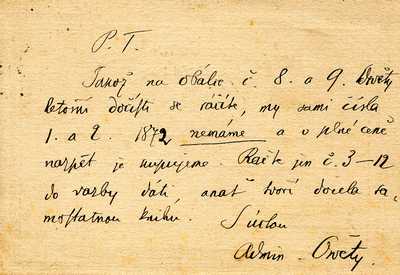 P. T.
Jakož na obálce č. 8. a 9. Osvěty
letošní dočísti se ráčíte, my sami čísla
1. a 2. 1872 nemáme a v plné ceně
nazpět je kupujeme. Račte jen č. 3–12
do vazby dáti anať tvoří docela sa-
mostatnou knihu.
S úctou
Admin. Osvěty.